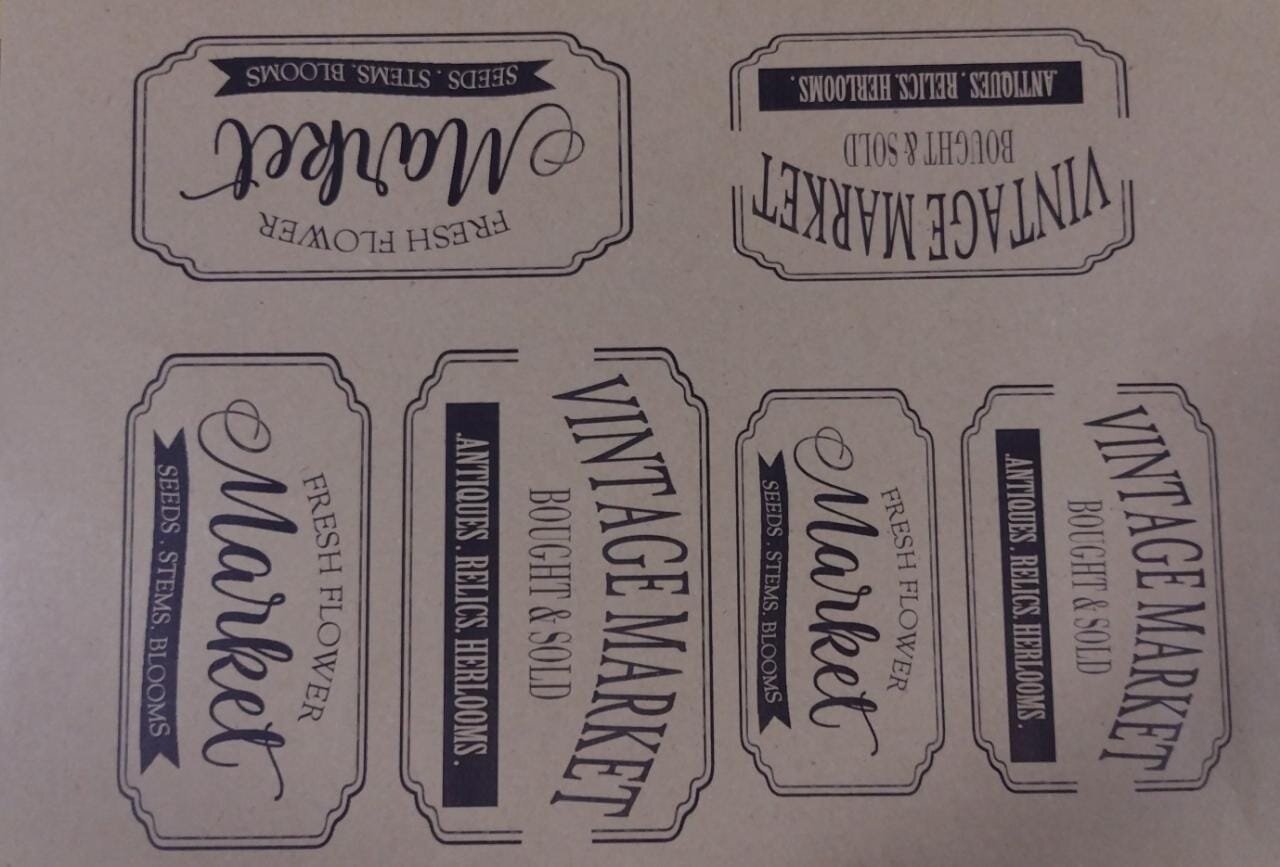 FRESH FLOWER
Market
SEEDS . STEMS. BLOOMS
VINTAGE MARKET
BOUGHT & SOLD
.ANTIQUES. RELICS. HERLOOMS.
FRESH FLOWER
Market
SEEDS . STEMS. BLOOMS
VINTAGE MARKET
BOUGHT & SOLD
.ANTIQUES. RELICS. HERLOOMS.
FRESH FLOWER
Market
SEEDS . STEMS. BLOOMS
VINTAGE MARKET
BOUGHT & SOLD
.ANTIQUES. RELICS. HERLOOMS.